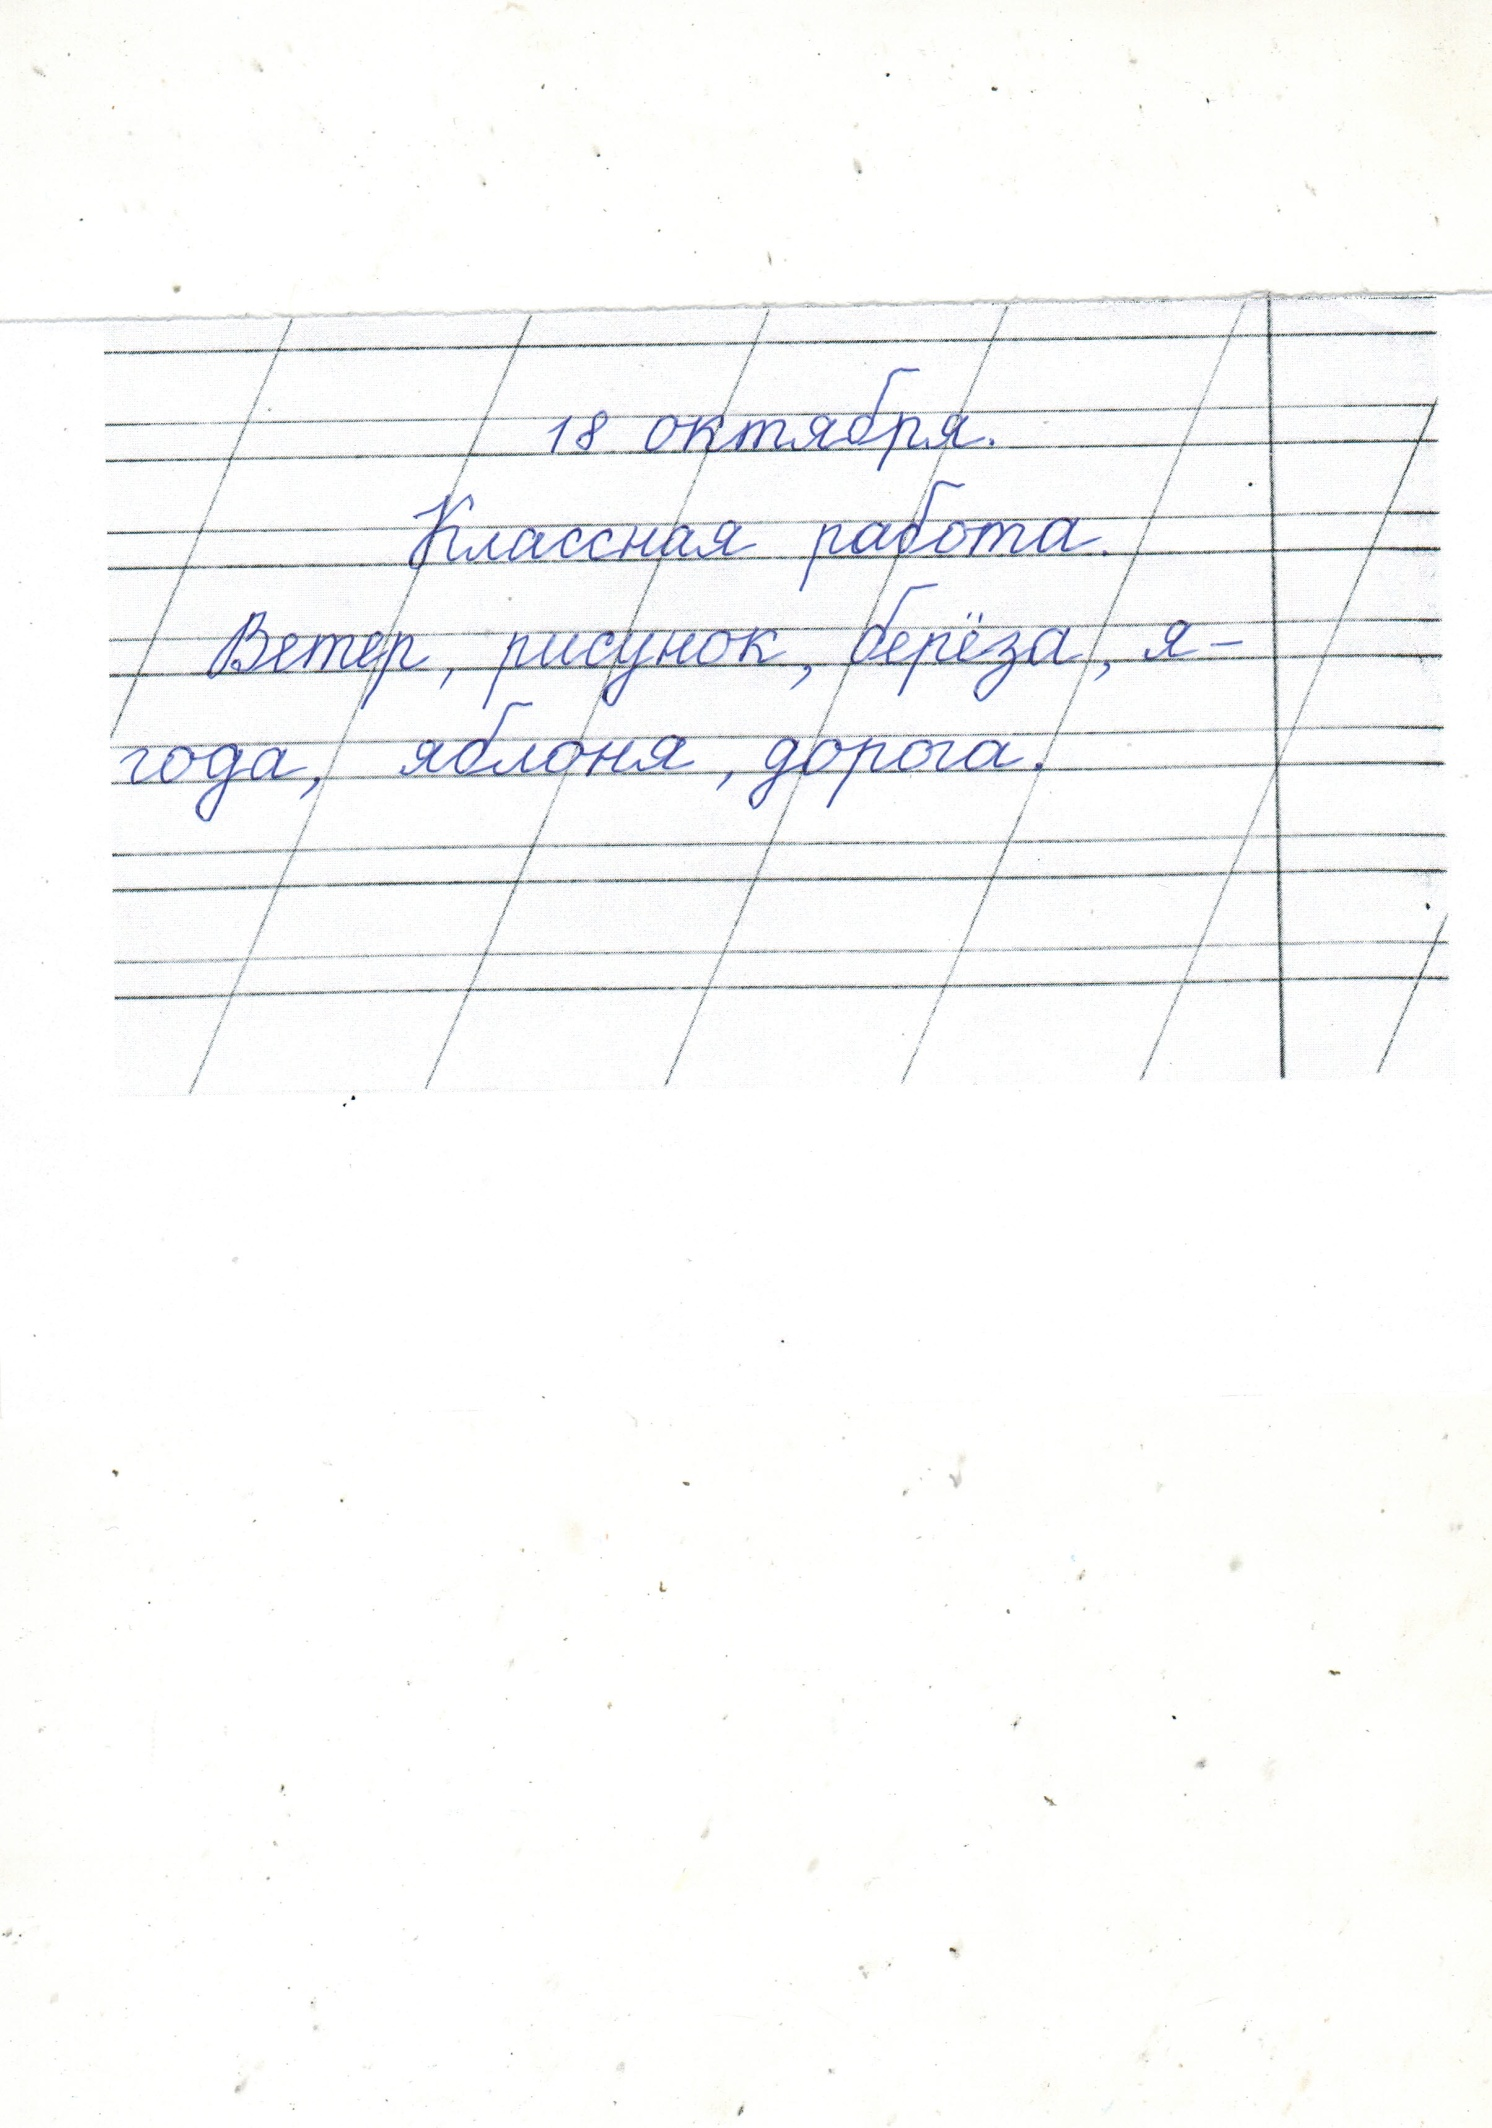 18 октября.
Классная работа.
Ветер, рисунок, берёза, я-
года, яблоня, дорога.